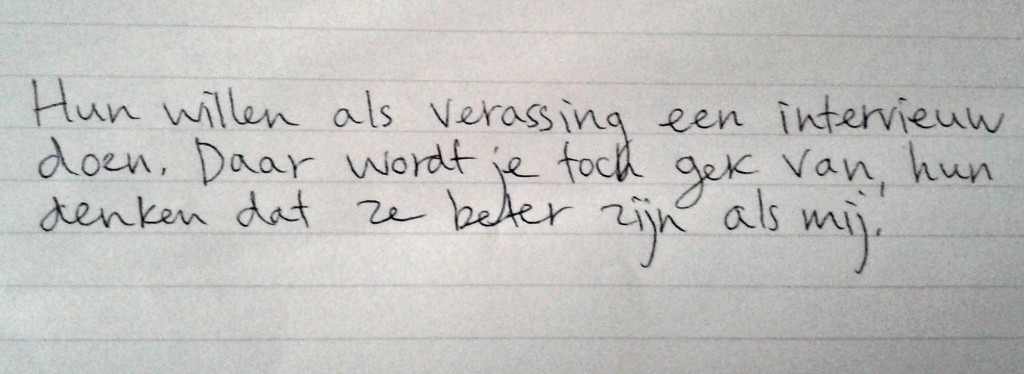 Hun willen als verassing een intervieuw
doen. Daar wordt je toch gek van, hun
denken dat ze beter zijn als mij.